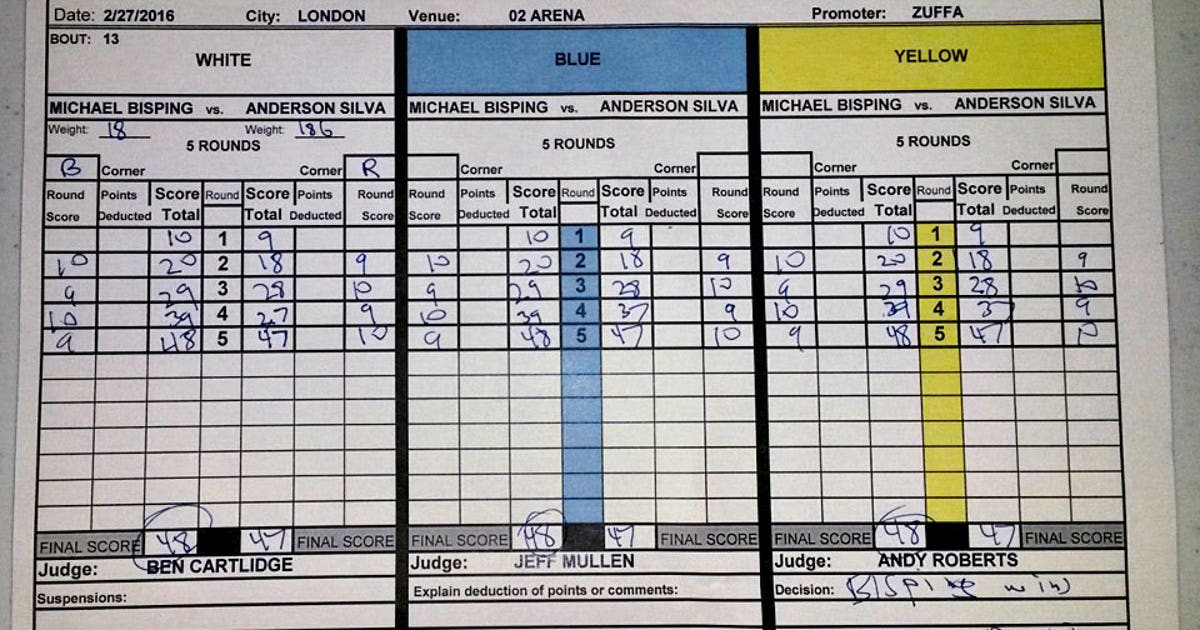 Date: 2/27/2016 City: LONDON Venue: 02 ARENA Promoter: ZUFFA
BOUT: 13
WHITE BLUE YELLOW
MICHAEL BISPING vs. ANDERSON SILVA MICHAEL BISPING vs. ANDERSON SILVA MICHAEL BISPING vs. ANDERSON SILVA
Weight: 18 Weight: 186
5 ROUNDS 5 ROUNDS 5 ROUNDS
B Corner Corner R Corner Corner Corner Corner
Round Points Score Round Score Points Round Round Points Score Round Score Points Round Round Points Score Round Score Points Round
Score Deducted Total Total Deducted Score Score Deducted Total Total Deducted Score Score Deducted Total Total Deducted Score
10 1 9 10 1 9 10 1 9
10 20 2 18 9 10 20 2 18 9 10 20 2 18 9
9 29 3 28 10 9 29 3 28 10 9 29 3 28 10
10 39 4 27 9 10 39 4 37 9 10 39 4 37 9
9 48 5 47 10 9 48 5 47 10 9 48 5 47 10
FINAL SCORE 48 47 FINAL SCORE FINAL SCORE 48 47 FINAL SCORE FINAL SCORE 48 47 FINAL SCORE
Judge: BEN CARTLIDGE Judge: JEFF MULLEN Judge: ANDY ROBERTS
Suspensions: Explain deduction of points or comments: Decision: Bisping win